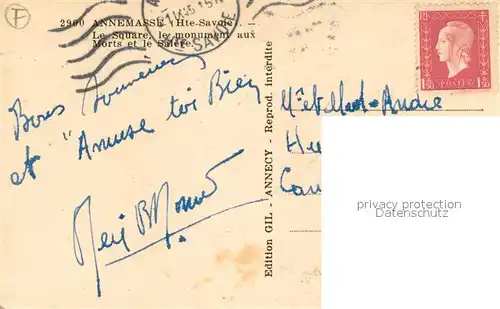 F
2900 ANNEMASSE (Hte-Savoie). —
Le Square, le monument aux
Morts et le Salève.
SAVOIE
RF
1F50 POSTES 1F50
Bons souvenirs
et "Amuse toi Bien
Edition GIL - ANNECY - Reprod. interdite
Mr et Mad. André
privacy protection
Datenschutz